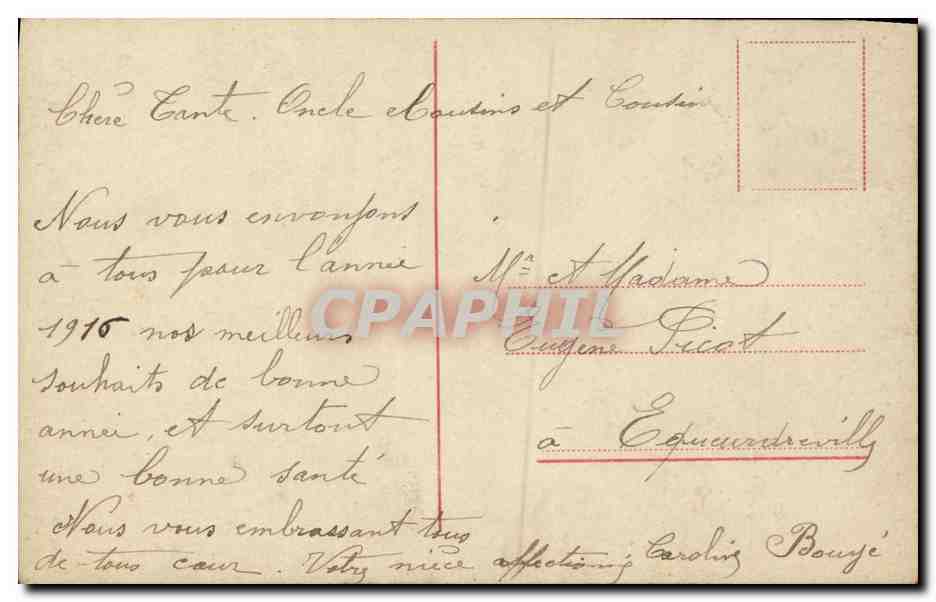 Chère Tante. Oncle et Cousins et Cousin
Nous vous envoyons
à tous pour l'année
1916 nos meilleurs
souhaits de bonne
année, et surtout
une bonne santé
Nous vous embrassant tous
de tous cœur. Votre nièce affectionné Caroline Bouyé
Mr et Madame
Eugène Picot
à Equeurdreville
CPAPHIL